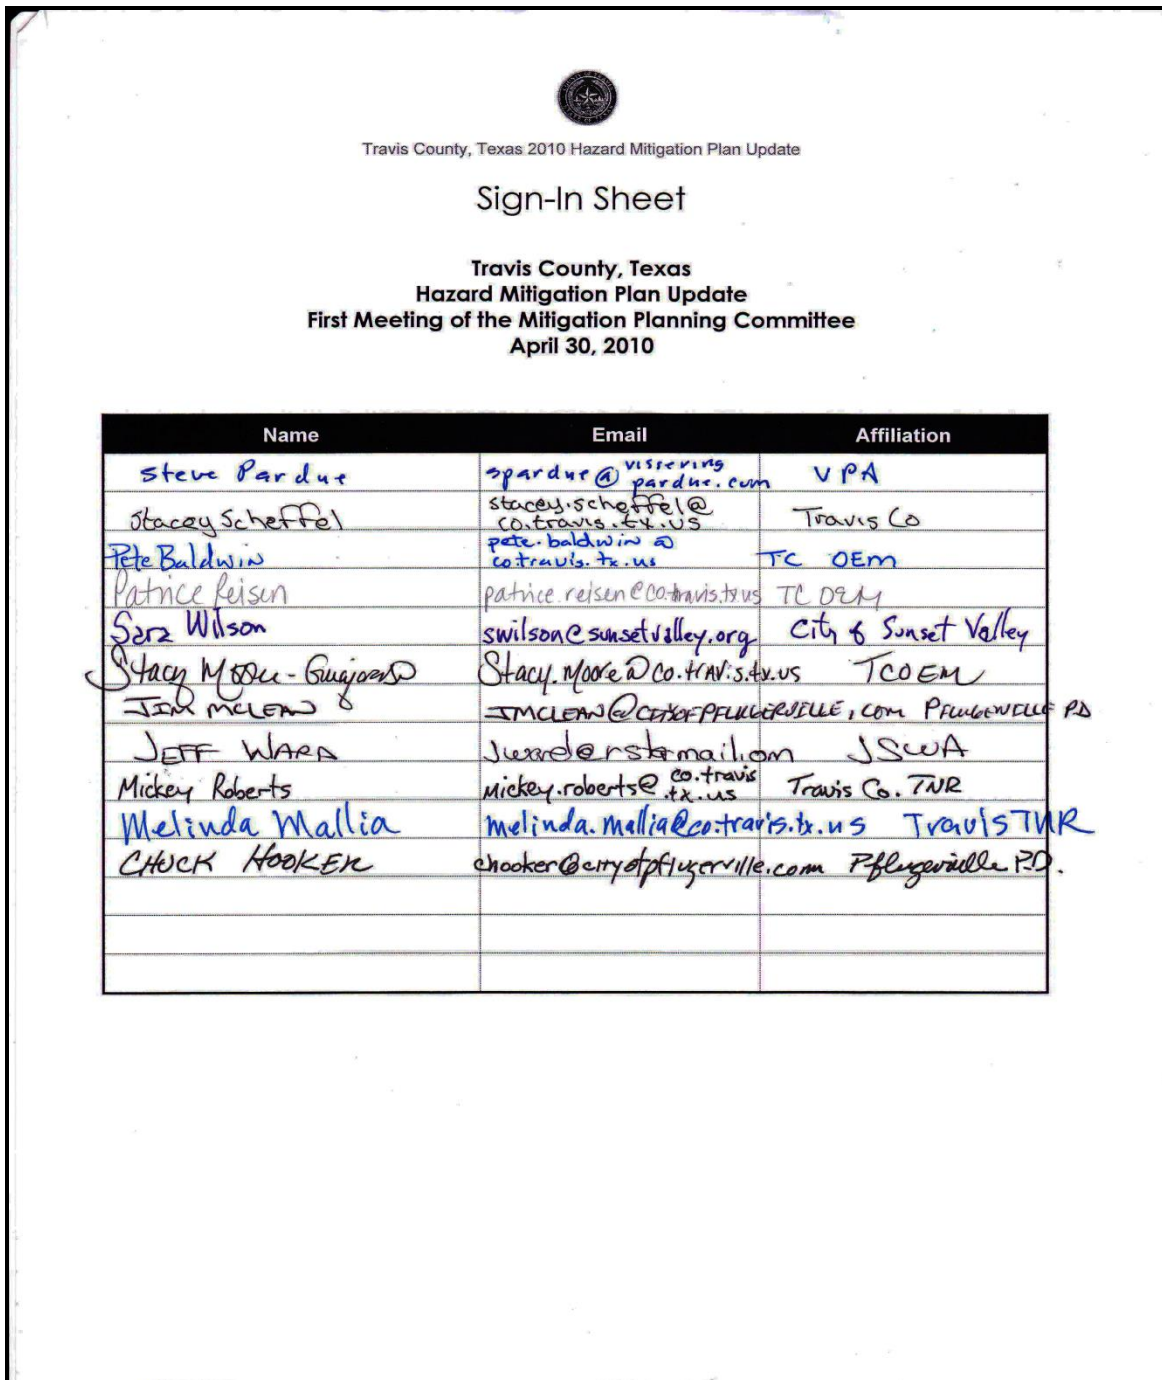 Travis County, Texas 2010 Hazard Mitigation Plan Update
Sign-In Sheet
Travis County, Texas
Hazard Mitigation Plan Update
First Meeting of the Mitigation Planning Committee
April 30, 2010
Name Email Affiliation
Steve Pardue spardue@vissering pardue.com VPA
Stacey Scheffel stacey.scheffel@ co.travis.tx.us Travis Co
Pete Baldwin pete.baldwin@ co.travis.tx.us TC OEM
Patrice Reisen patrice.reisen@co.travis.tx.us TC OEM
Sara Wilson swilson@sunsetvalley.org City of Sunset Valley
Stacy Moore- Stacy.Moore@co.travis.tx.us TCOEM
JIM MCLEAN JMCLEAN@CITYOFPFLUGERVILLE.COM PFLUGERVILLE PD
JEFF WARD JSWA
Mickey Roberts mickey.roberts@co.travis .tx.us Travis Co. TNR
Melinda Mallia melinda.mallia@co.travis.tx.us Travis TNR
CHUCK HOOKER chooker@cityofpflugerville.com Pflugerville P.D.